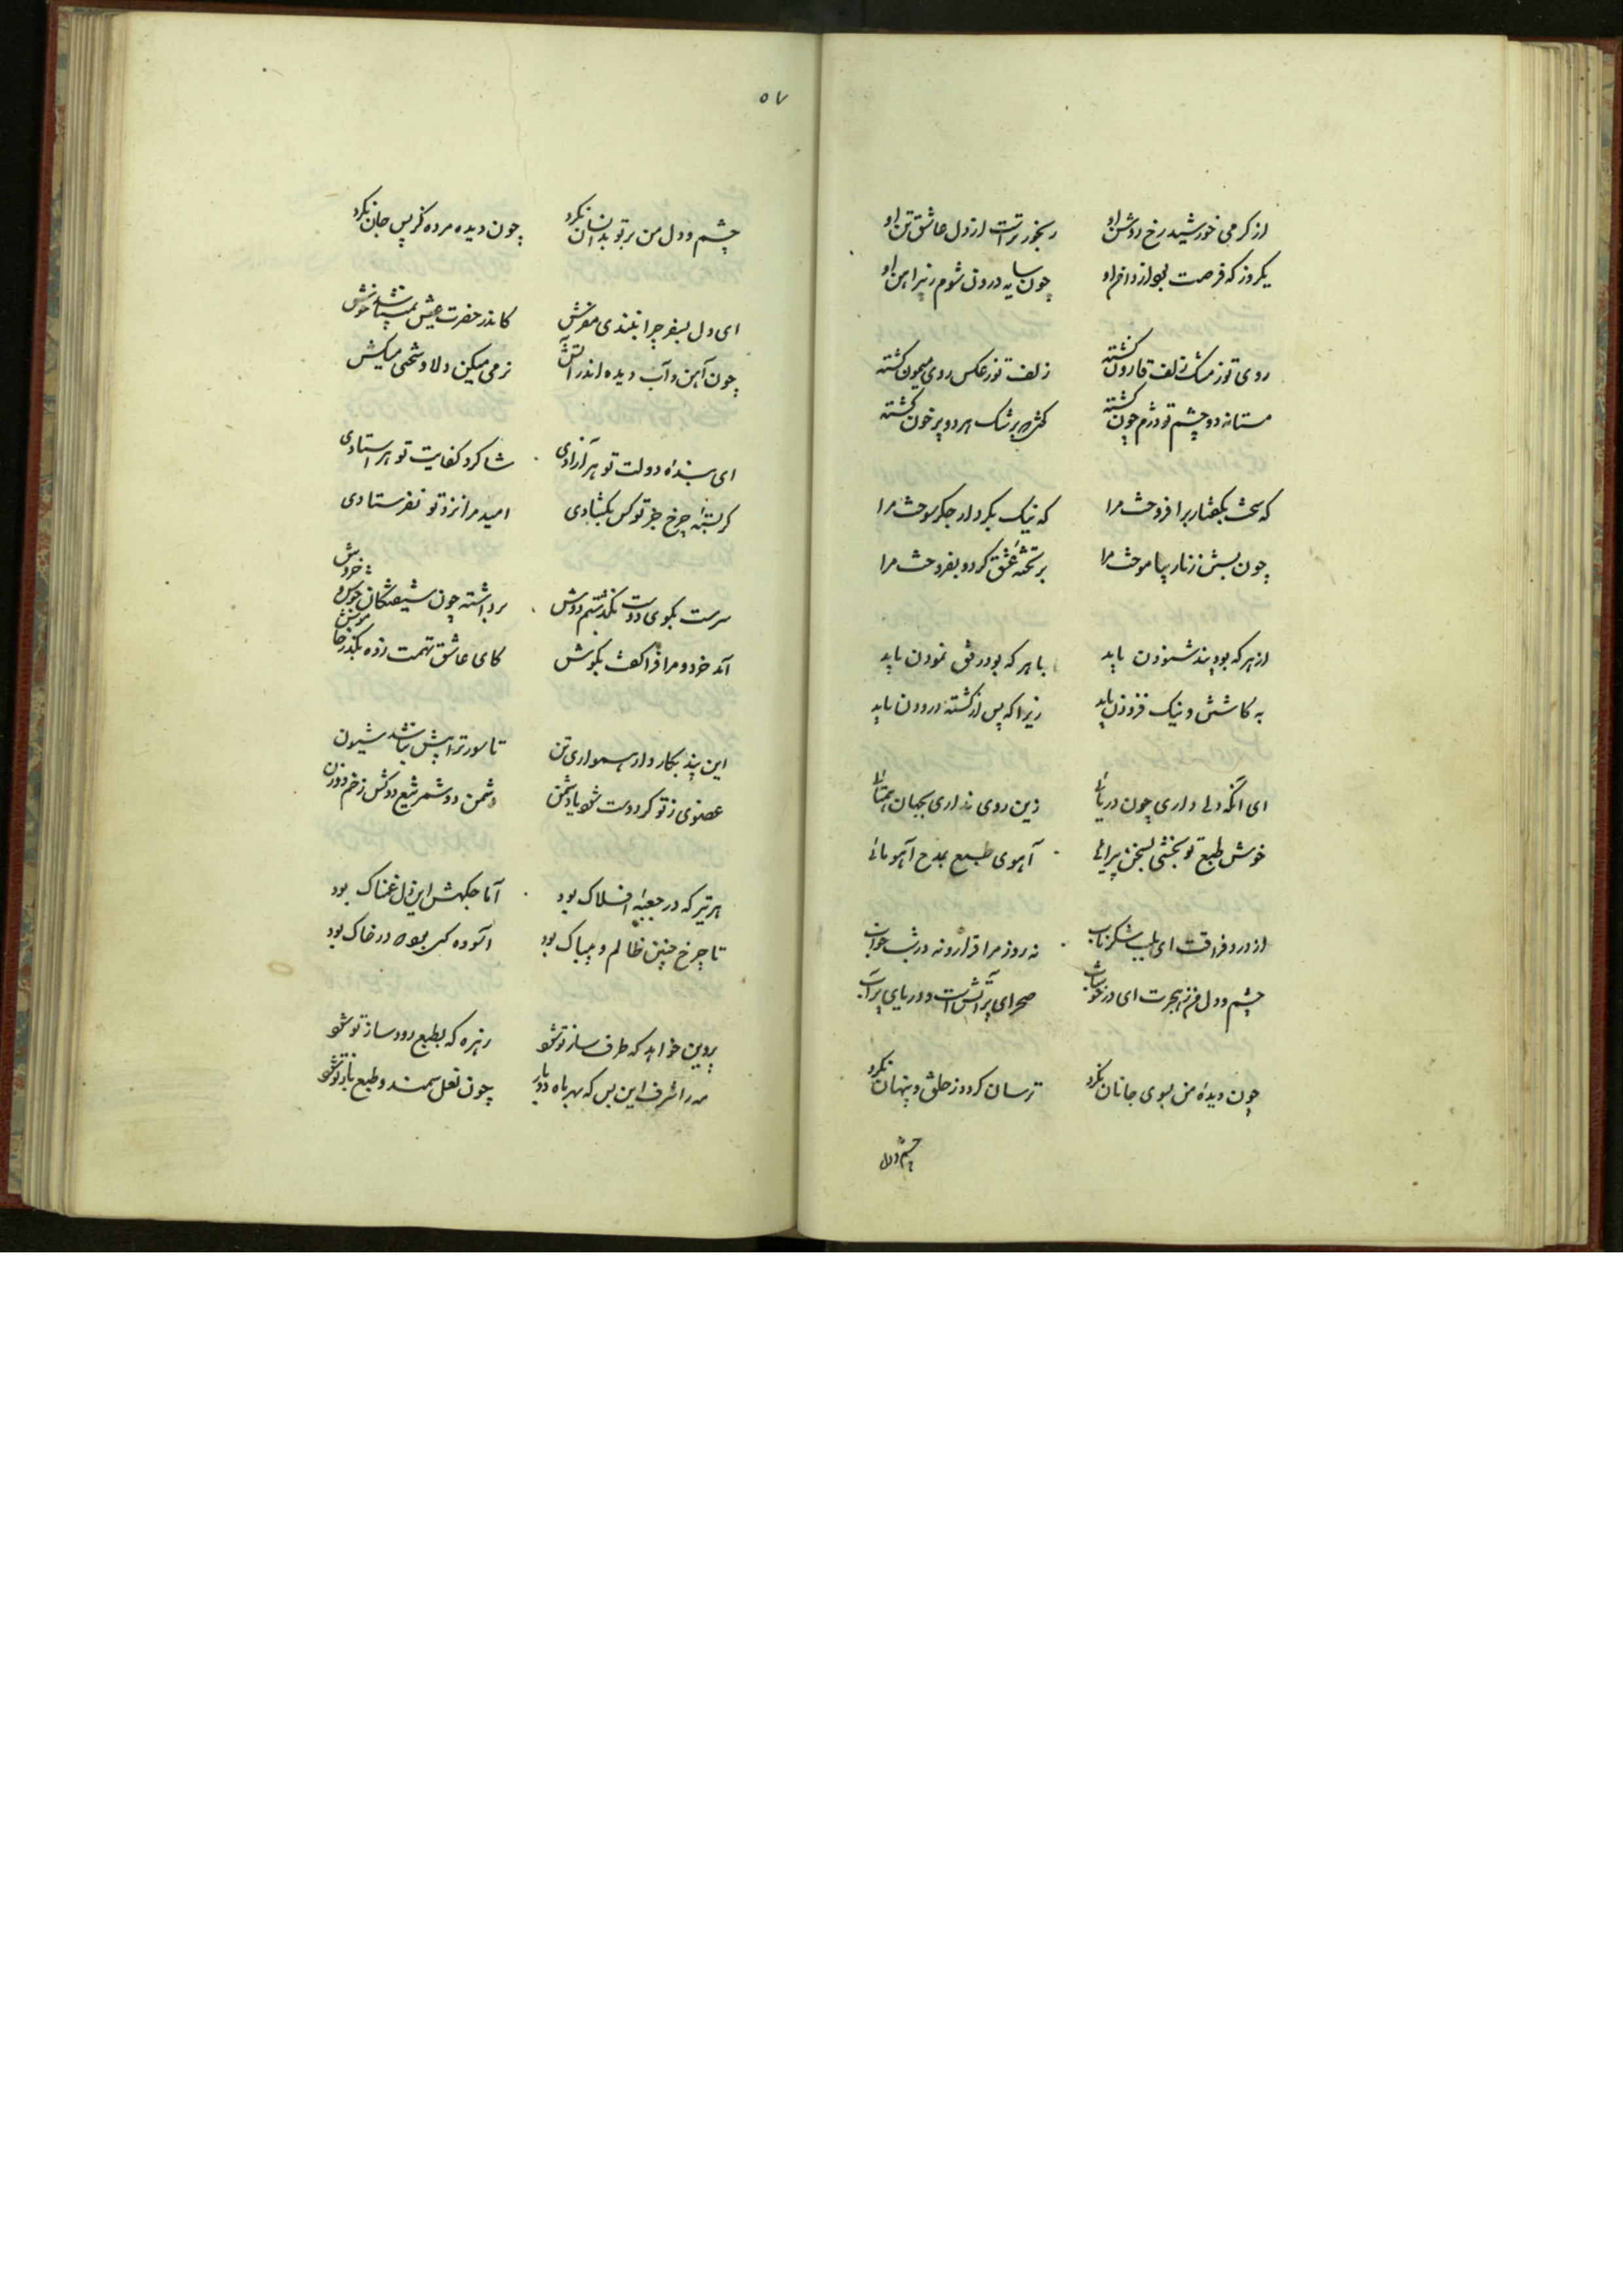 از گرمی خورشید رخ روشن او رنجورتر است از دل عاشق تن او
یکروز که فرصت بود از دامن او چون سایه درون شوم ز پیراهن او
روی تو ز مشک زلف قارون گشته زلف تو ز عکس روی میمون گشته
مستانه دو چشم تو دژم چون گشته کز هر سرشک هر دو پر خون گشته
که سخت بگفتار برافروخت مرا که نیک بکردار جگر سوخت مرا
چون بستن زنار بیاموخت مرا بر تخته عشق کرد و بفروخت مرا
از هر که بود پند شنودن باید با هر که بود رفق نمودن باید
بد کاشتن و نیک فزودن باید زیرا که پس از کشته درودن باید
ای آنکه دلی داری چون دریائی زین روی نداری بجهان همتائی
خوش طبع تو بخشی بسخن پیرائی آهوی طبع بمدح آهو مائی
از درد فراقت ای بلب شکر ناب نه روز مرا قرار و نه در شب خواب
چشم و دل من ز هجرت ای در خوشاب صحرای پر آتش است و دریای پر آب
چون دیده من بسوی جانان نگرد ترسان گردد ز خلق و پنهان نگرد
چشم و دل
۵۷
چشم و دل من بر تو بدانسان نگرد چون دیده مرده کز پس جان نگرد
ای دل بسفر چرا نبندی مفرش کاندر حضرت عیش نمیباشد خوش
چون آهن و آب دیده اندر آتش نرمی میکن دلا و سختی میکش
ای بنده دولت تو هر آزادی شاگرد کفایت تو هر استادی
گر بسته چرخ جز تو کس بگشادی امید مرا نزد تو نفرستادی
سرمست بکوی دوست بگذشتم دوش برداشته چون شیفتگان جوش و خروش
آمد خرد و مرا فرا گفت بگوش کای عاشق تهمت زده بگذر خاموش
این پند بکار دار هموار ای تن تا سور ترا پیش نباشد شیون
عضوی ز تو گر دوست شود با دشمن دشمن دو شمر تیغ دو کش زخم دو زن
هر تیر که در جعبه افلاک بود آماجگهش این دل غمناک بود
تا چرخ چنین ظالم و بیباک بود آسوده کسی بود که در خاک بود
پروین خواهد که طرف ساز تو شود زهره که بطبع رود ساز تو شود
مه را شرف این بس که بهر ماه دو بار چون نعل سمند و طبع باز تو شود